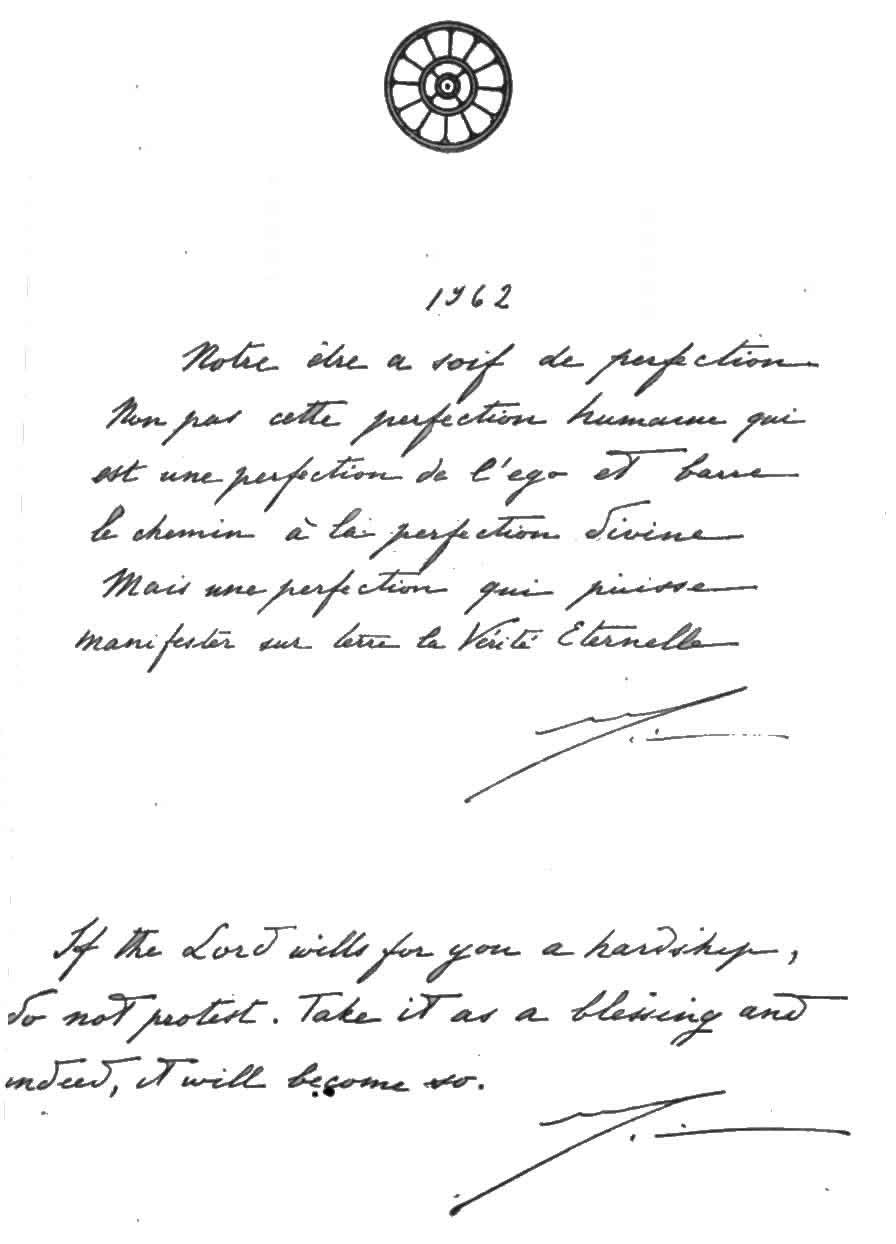 1962
Notre être a soif de perfection
Non pas cette perfection humaine qui
est une perfection de l'ego et barre
le chemin à la perfection divine
Mais une perfection qui puisse
manifester sur terre la Vérité Eternelle
If the Lord wills for you a hardship,
do not protest. Take it as a blessing and
indeed, it will become so.